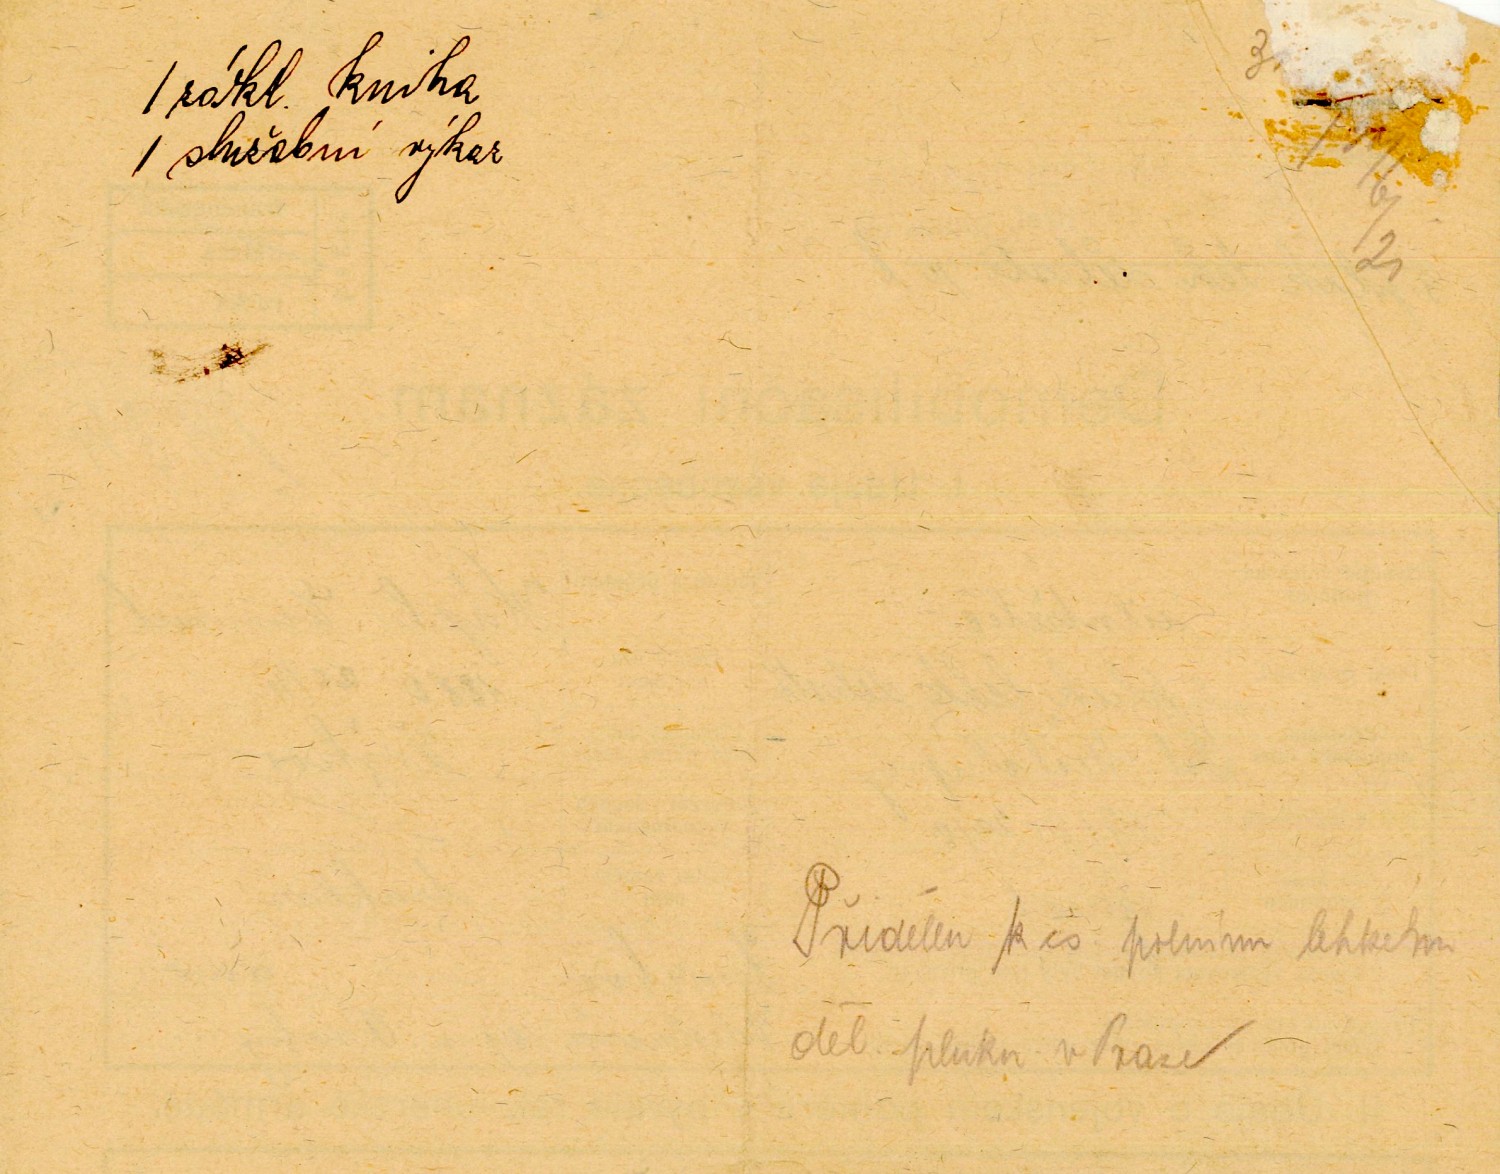 1 zákl. kniha
1 služební výkaz
Přidělen k čs polnímu lehkému
děl. pluku v Praze